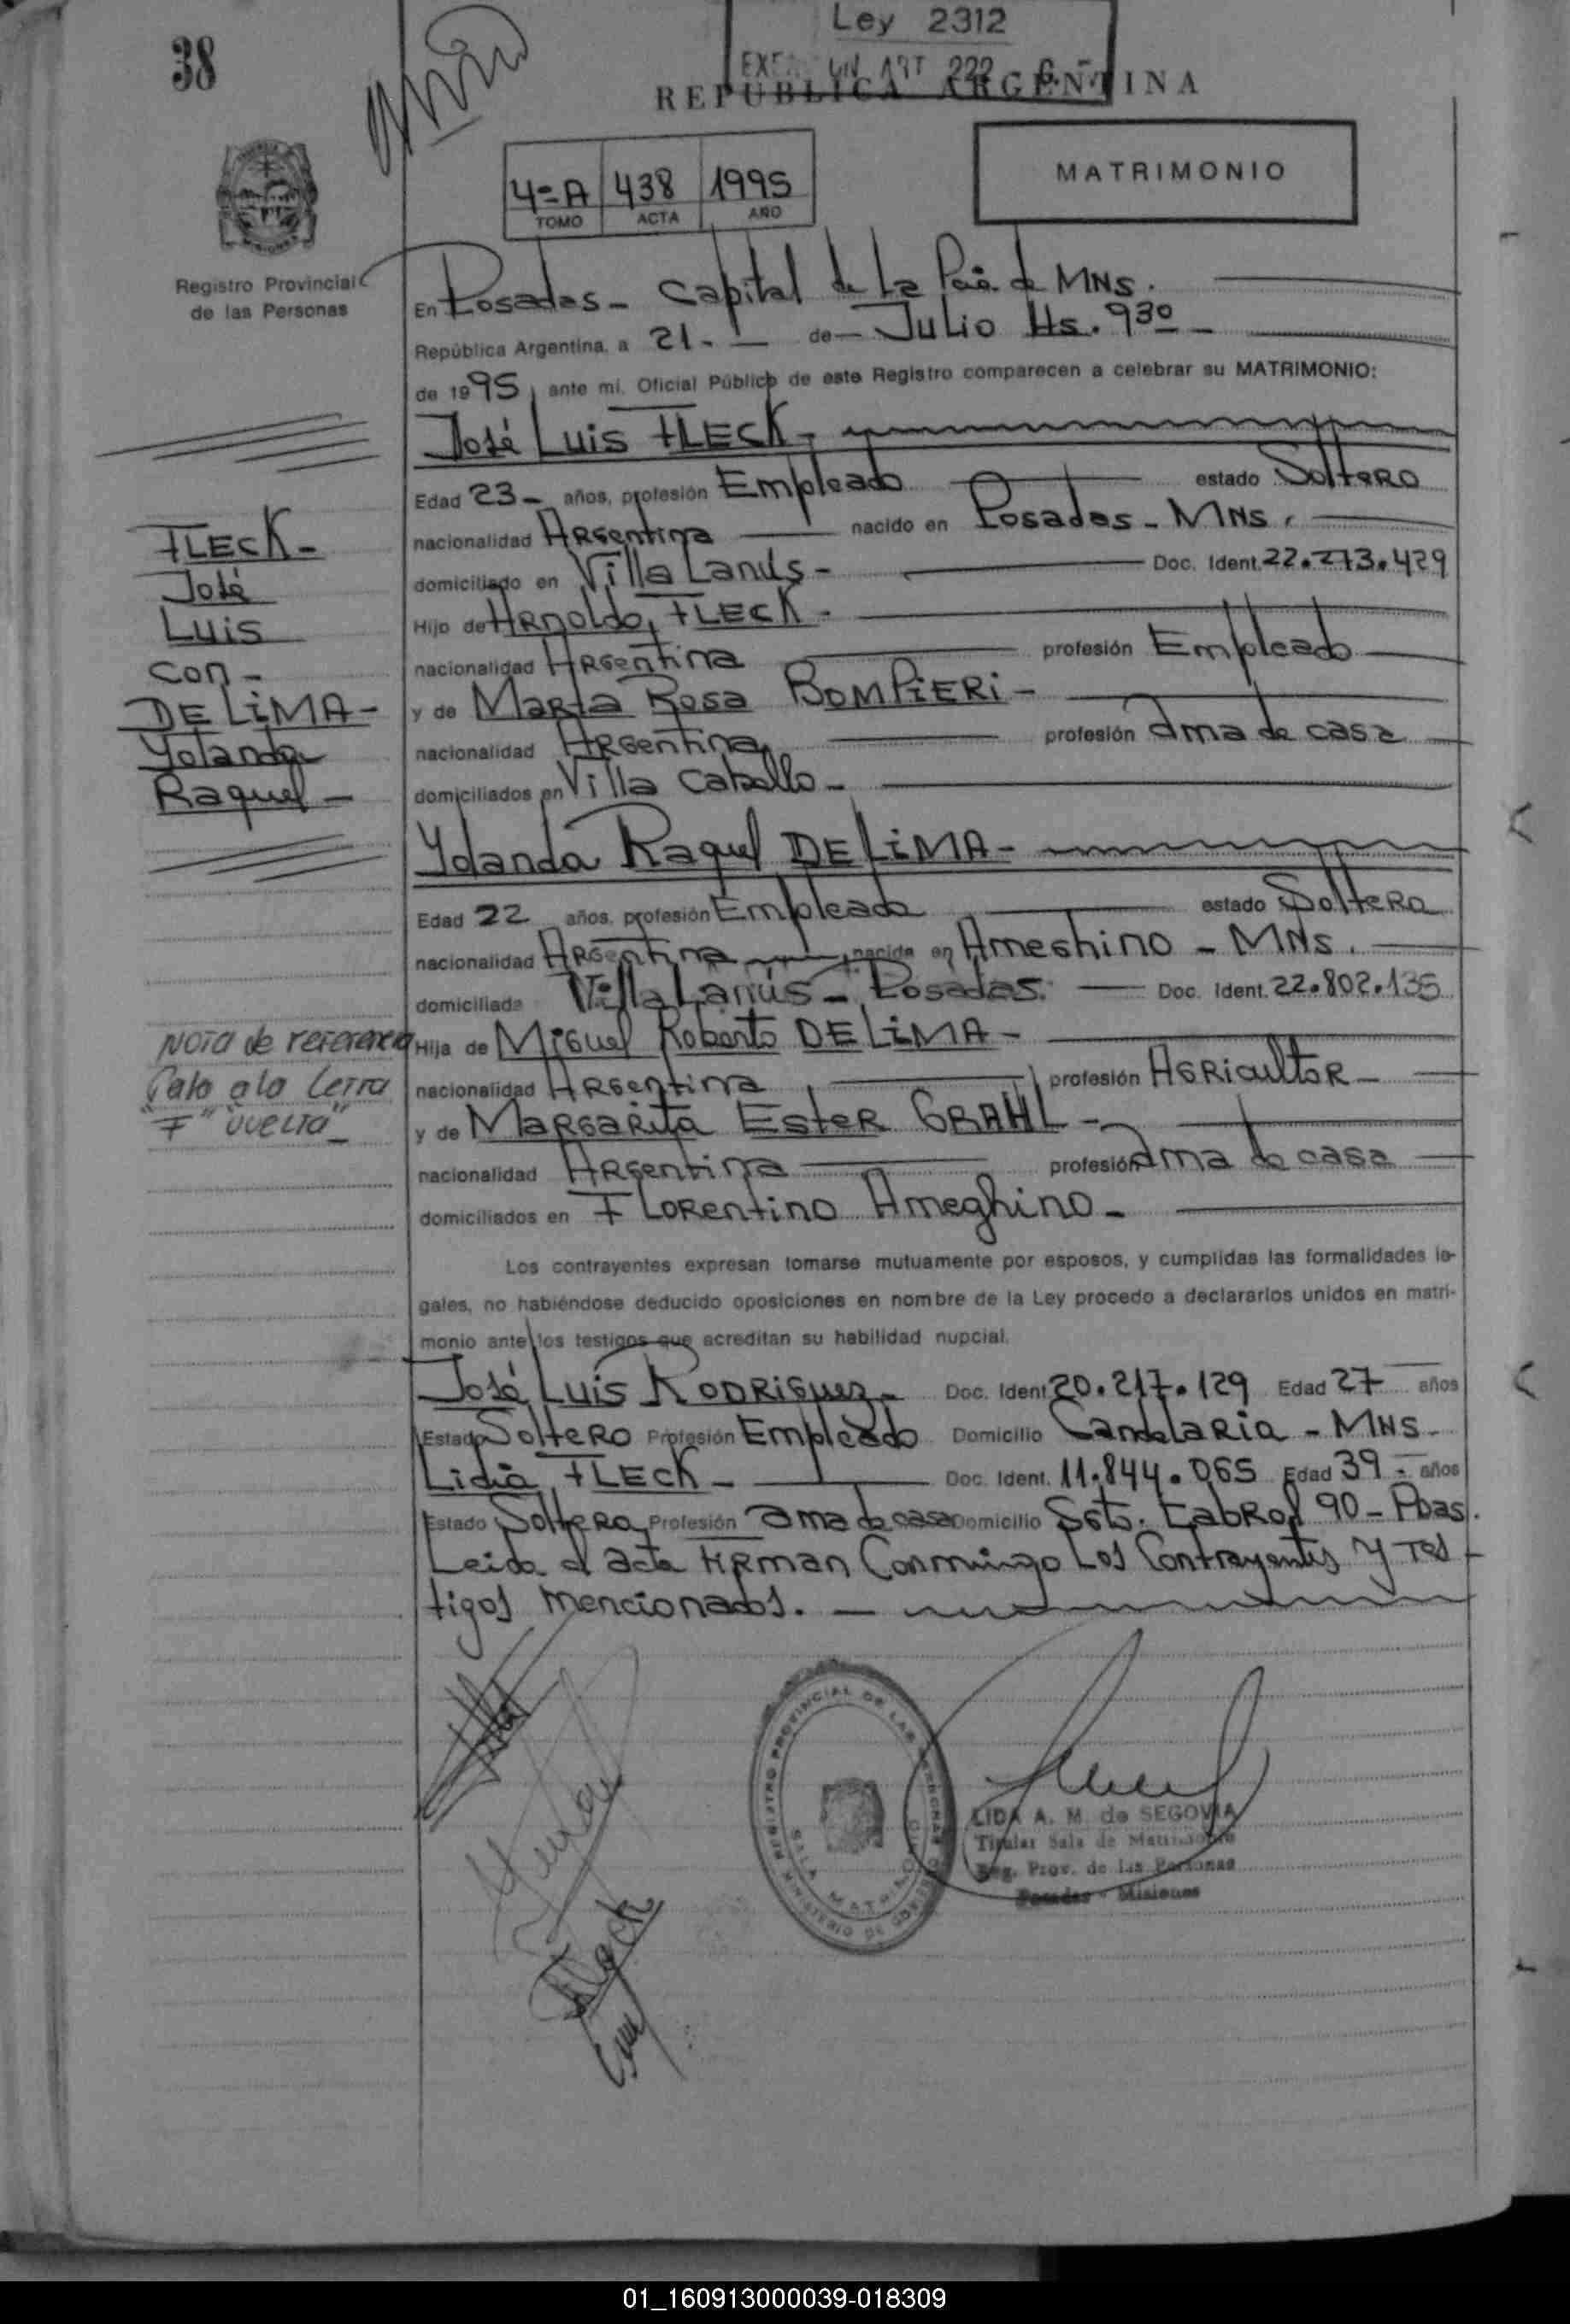 38
Ley 2312
ART 222
REPUBLICA ARGENTINA
4=A 438 1995
TOMO ACTA AÑO
MATRIMONIO
Registro Provincial
de las Personas
En Posadas - Capital de La Pcia. de MNS.
República Argentina, a 21.- de - Julio Hs. 9³⁰ -
de 1995, ante mi, Oficial Público de este Registro comparecen a celebrar su MATRIMONIO:
José Luis FLECK -
Edad 23 - años, profesión Empleado estado Soltero
nacionalidad Argentina nacido en Posadas - MNS.
domiciliado en Villa Lanús - Doc. Ident. 22.273.429
Hijo de Arnoldo FLECK -
nacionalidad Argentina profesión Empleado
y de Marta Rosa BOMPiERi -
nacionalidad Argentina profesión Ama de casa
domiciliados en Villa Cabello -
FLECK -
José
Luis
con -
DE LiMA -
Yolanda
Raquel -
Yolanda Raquel DE LiMA -
Edad 22 años, profesión Empleada estado Soltera
nacionalidad Argentina nacida en Ameghino - MNS.
domiciliada Villa Lanús - Posadas. Doc. Ident. 22.802.135
Hija de Miguel Roberto DE LiMA -
nacionalidad Argentina profesión Agricultor -
y de Margarita Ester GRAHL -
nacionalidad Argentina profesión Ama de casa
domiciliados en Florentino Ameghino -
Nota de referencia
Pasa a la Letra
"F" "vuelta" -
Los contrayentes expresan tomarse mutuamente por esposos, y cumplidas las formalidades le-
gales, no habiéndose deducido oposiciones en nombre de la Ley procedo a declararlos unidos en matri-
monio ante los testigos que acreditan su habilidad nupcial.
José Luis Rodriguez - Doc. Ident. 20.217.129 Edad 27 años
Estado Soltero Profesión Empleado Domicilio Candelaria - MNS -
Lidia FLECK - Doc. Ident. 11.844.065 Edad 39 - años
Estado Soltera Profesión Ama de casa Domicilio Sgto. Cabral 90 - Pdas.
Leida el acta firman Conmingo Los Contrayentes y Tes -
tigos mencionados. -
Fleck
REGISTRO PROVINCIAL DE LAS PERSONAS
MINISTERIO DE GOBIERNO
SALA MATRIMONIO
LIDA A. M. de SEGOVIA
Titular Sala de Matrimonio
Reg. Prov. de las Personas
Posadas - Misiones
01_160913000039-018309